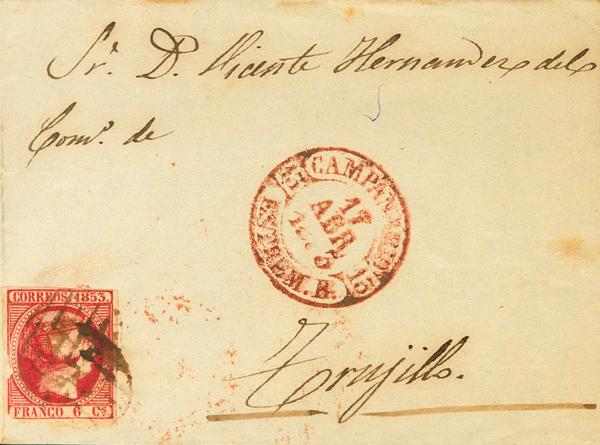 Sr. D. Vicente Hernandez del
Comº. de
CAMPANARIO
17
ABR
ESTREM. B.
CORREOS 1853.
FRANCO 6 Cs.
Trujillo.